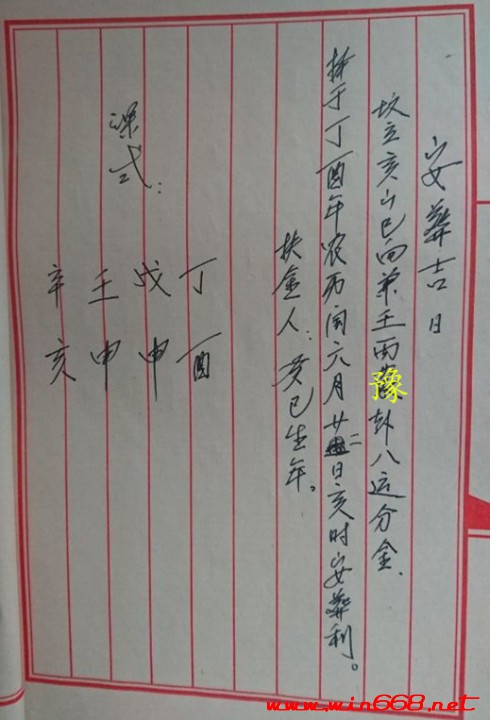 安葬吉日
坟立亥山巳向兼壬丙豫卦八运分金.
择于丁酉年农历闰六月廿二日亥时安葬利。
扶金人:癸巳生年。
课式:
丁酉
戊申
壬申
辛亥
www.win668.net